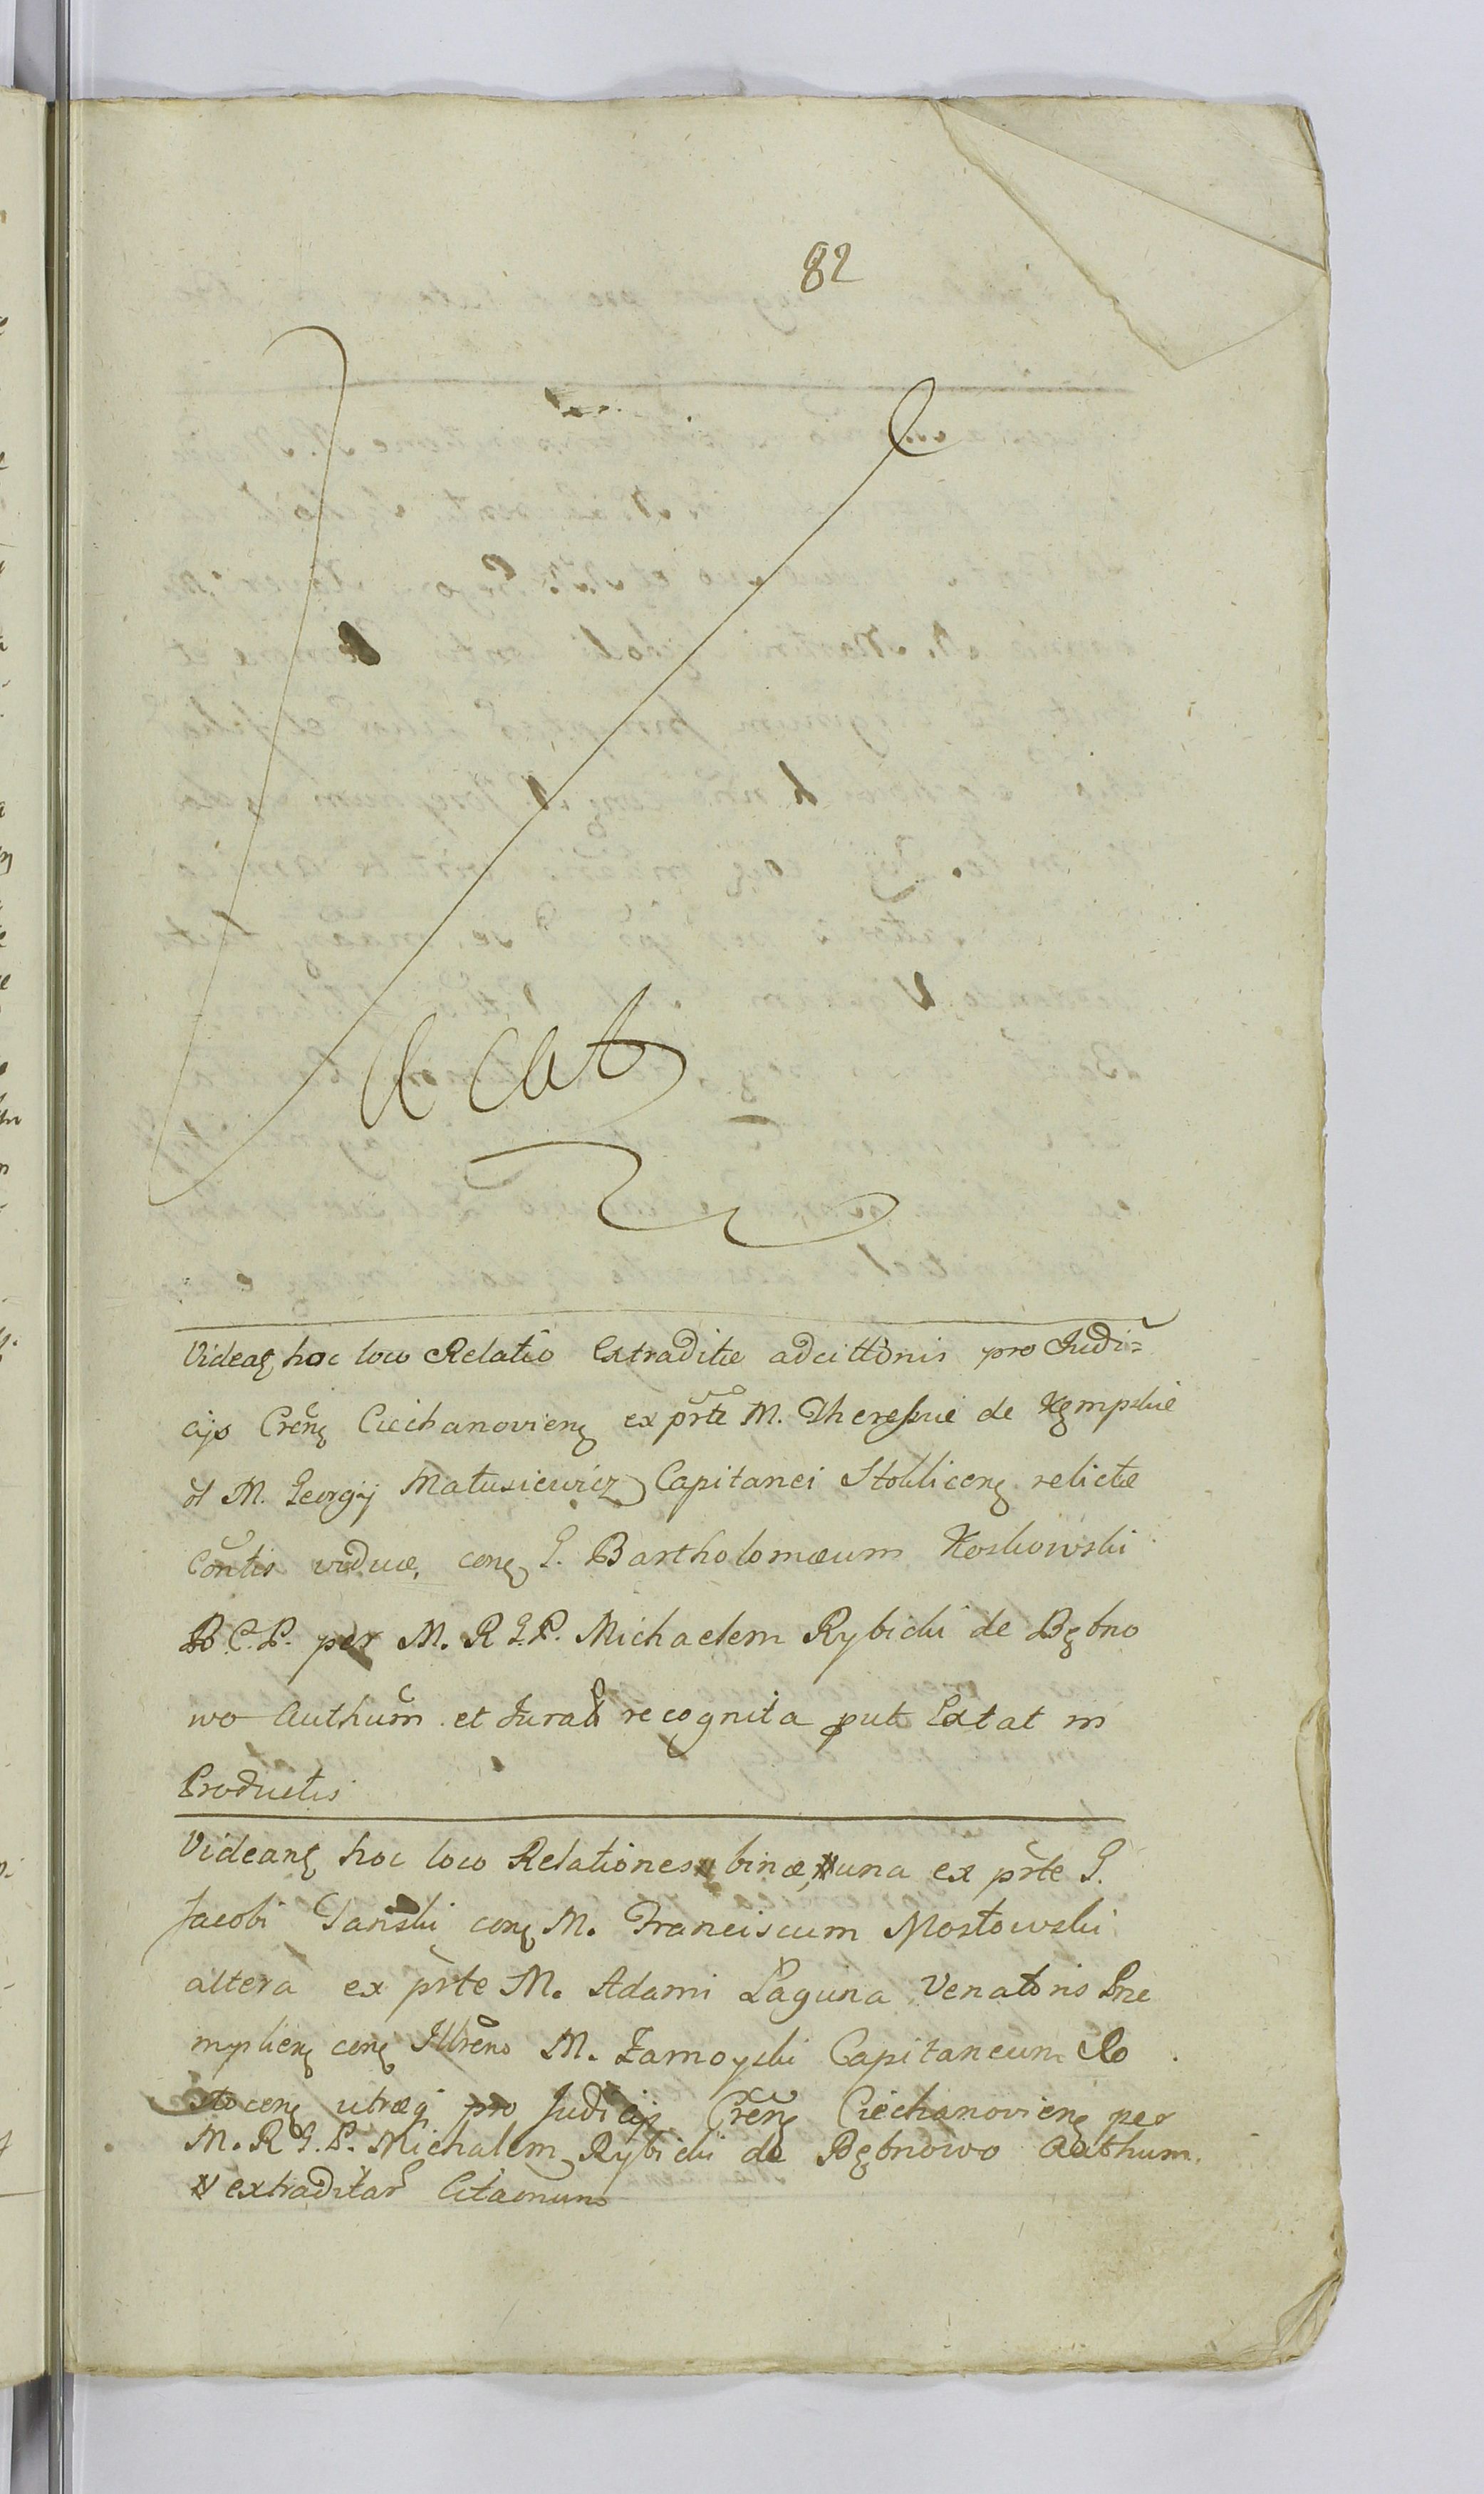 82
Vacat
Videatʒ hoc loco Relatio Extraditæ adcittõnis pro Judi=
cijs Cren̄ʒ Ciechanovienʒ ex pr̃te M. Theressiæ de Kęmpskie
ol M. Georgij Matusiewicz Capitanei Stokliceng relictæ
Conr̃tis viduæ, conʒ G. Bartholomæum Koskowski
B C. P. per M. R G. P. Michaelem Rybicki de Bębno
wo Authum̃ et Jurat̃ recognita put Extat in
Productis
Videanʒ hoc loco Relationes binæ, una ex pr̃te G.
Jacobi Tański conʒ M. Franciscum Mostowski
altera ex pr̃te M. Adami Laguna Venatoris Prze
mysliensʒ conʒ Illr̃em M. Zamoyski Capitaneum Ro
stocenʒ utræqʒ pro Judicijs Cren̄ʒ Ciechanovienʒ per
M. R G. P. Michalem Rybicki de Bębnowo Authum.
extraditar̃ Citaõnum